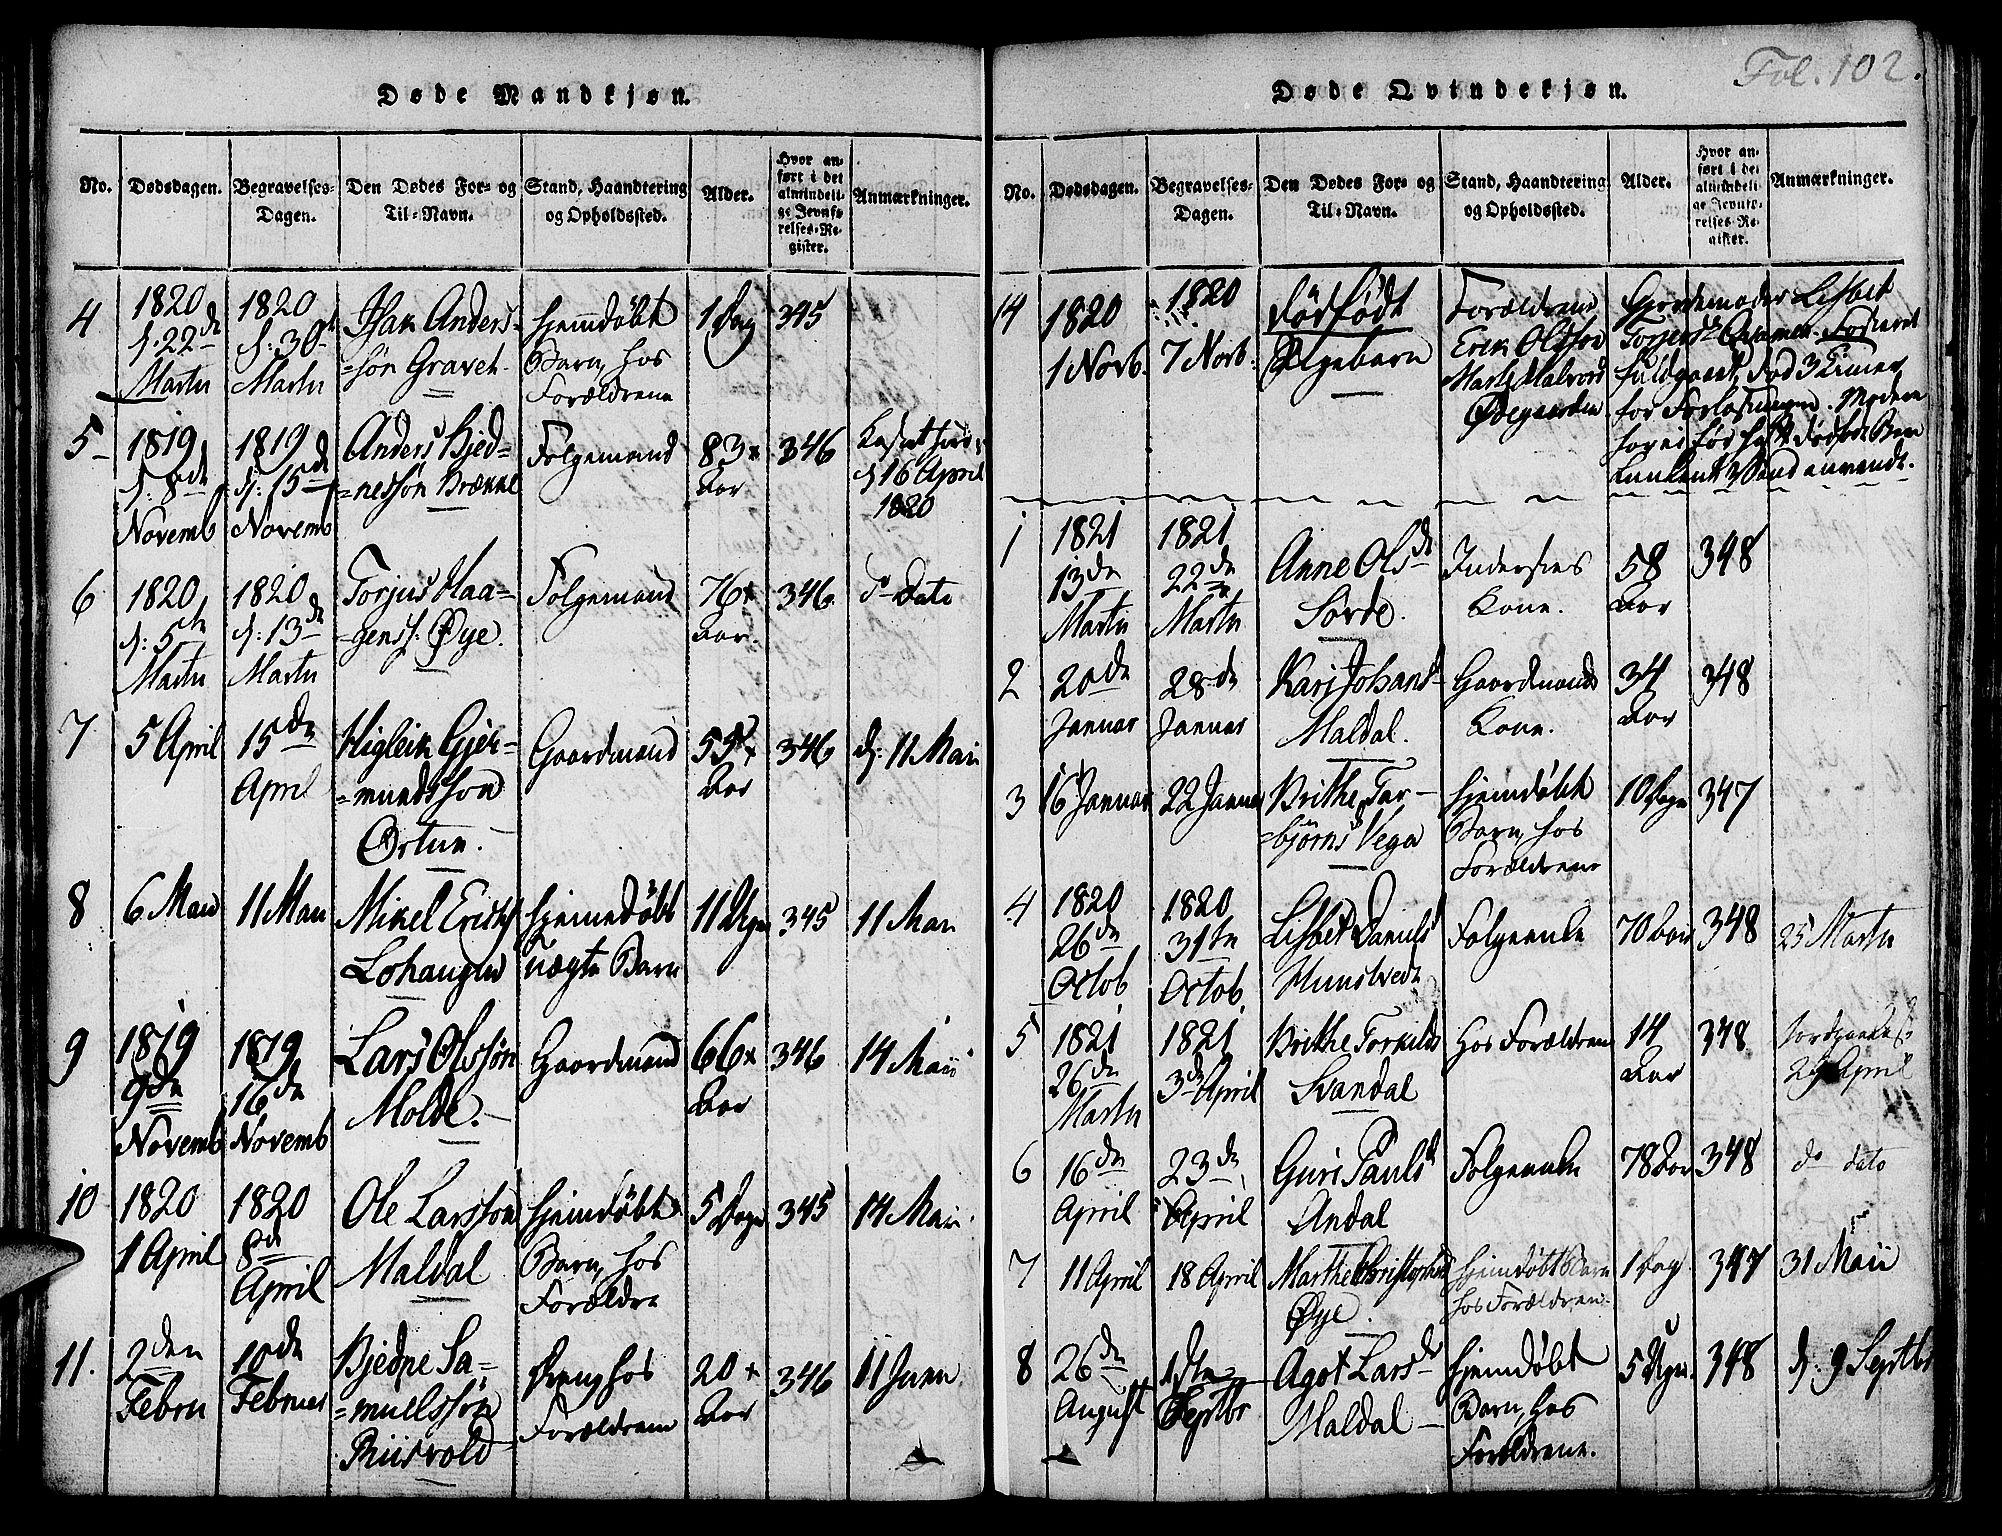 Fol. 102.
Døde Mandkjøn.
No. Dødsdagen. Begravelses-Dagen. Den Dødes For- og Til-Navn. Stand, Haandtering og Opholdssted. Alder. Hvor anført i det almindelige Jevnførelses-Register. Anmærkninger.
4 1820 d. 22de Martii 1820 d: 30te Martii Isak Anderssøn Gravet. hjemdøbt Barn, hos Forældrene 1 Dag 345
5 1819 d. 8de Novemb 1819 d: 15de Novemb Anders Bjednessøn Brække Folgemand 83 Aar 346 d 16 April 1820
6 1820 d: 5te Martii 1820 d: 13de Martii Torjus Haagenss. Øye. Folgemand 76 Aar. 346 do Dato
7 5 April 15de April Higleik Gjermundssøn Ørtun. Gaardmand 55 Aar 346 d: 11 Maii
8 6 Maii 11 Maii Mikel Erichs Lohaugen hjemedøbt uægte Barn 11 Uger 345 11 Maii
9 1819 9de Novemb 1819 16de Novemb Lars Olssøn Molde. Gaardmand 66 Aar 346 14 Maii
10 1820 1 April 1820 8de April Ole Larssøn Maldal hjemdøbt Barn, hos Forældre 5 Dage 345 14 Maii
11. 2den Febru 10de Februar Bjedne Samuelssøn Riisvold Dreng hos Forældrene 20 Aar 346 11 Juni
Døde Qvindekjøn.
No. Dødsdagen. Begravelses-Dagen. Den Dødes For- og Til-Navn. Stand, Haandtering og Opholdssted. Alder. Hvor anført i det almindelige Jevnførelses-Register. Anmærkninger.
14 1820 1 Novb. 1820 7 Novb: dødfødt Pigebarn Forældrene Erik Olssøn Marte Halvors Ødegaarden Gjordemoder Lisbet
fuldgaaet, død 3 Timer
for Forløsningen. Moderen
1 1821 13de Martii 1821 22de Martii Anne Olsdr Sørde. Indersters Kone. 58 Aar 348
2 20de Januar 28de Januar Kari Johansd Maldal. Gaardmands Kone. 34 Aar 348
3 16 Januar 22 Januar Brithe Torbjørns Vega hjemdøbt Barn, hos Forældrene 10 Dage 347
4 1820 26de Octob 1820 31te Octob. Lisbet Daniels Hunstvedt Folgeenke 70 Aar 348 25 Martii
5 1821 26de Martii 1821 3de April Brithe Torkilds Svandal hos Forældrene 14 Aar 348 29 April
6 16de April 23de April Guri Pauls Andal Folgeenke 78 Aar 348 do dato
7 11 April 18 April Marthe Christophers Øye. hjemdøbt Barn hos Forældrene. 1 Dag 347 31 Maii
8 26de August 1ste Septbr Agot Larsd Maldal hjemdøbt Barn, hos Forældrene. 5 Uger. 348 d: 9 Septbr